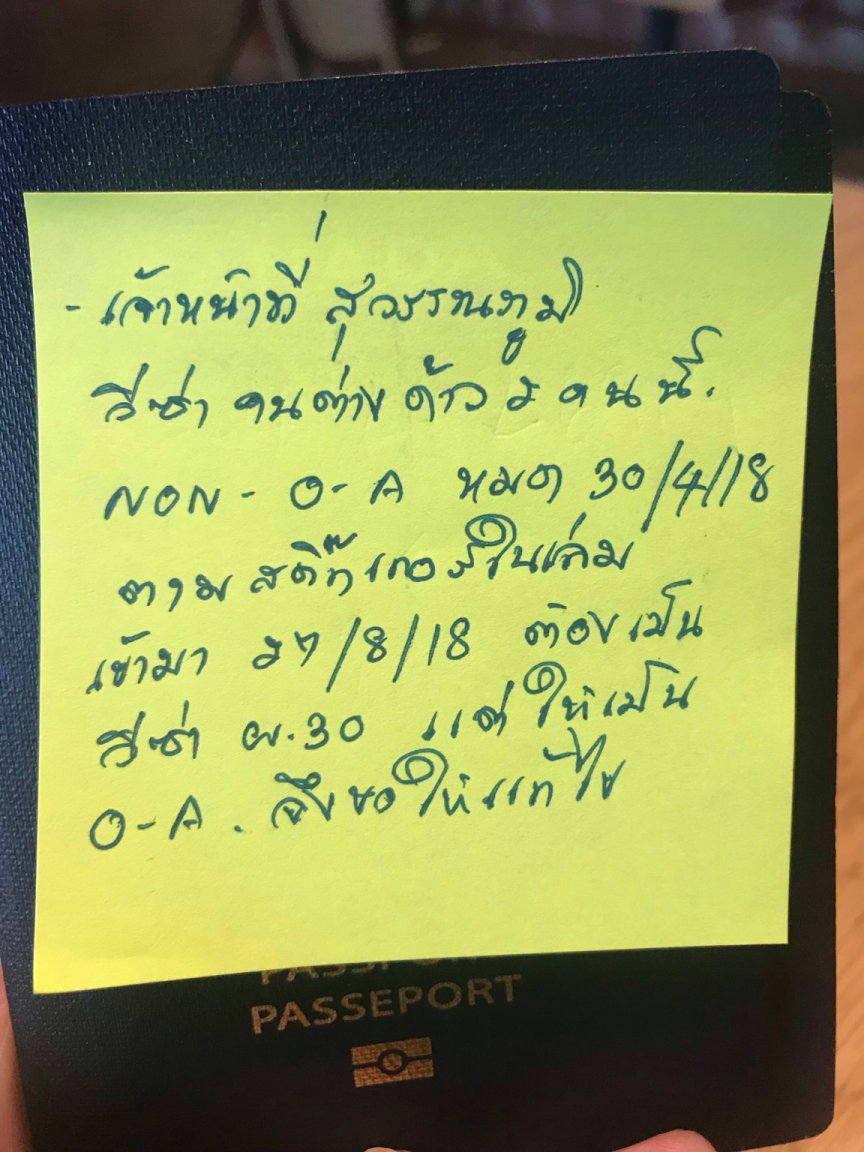 - เจ้าหน้าที่ สุวรรณภูมิ
วีซ่า คนต่างด้าว 2 คนนี้.
NON - O - A หมด 30/4/18
ตามสติ๊กเกอร์ในเล่ม
เข้ามา 27/8/18 ต้องเป็น
วีซ่า ผ.30 แต่ให้เป็น
O-A. จึงขอให้แก้ไข
PASSPORT
PASSEPORT